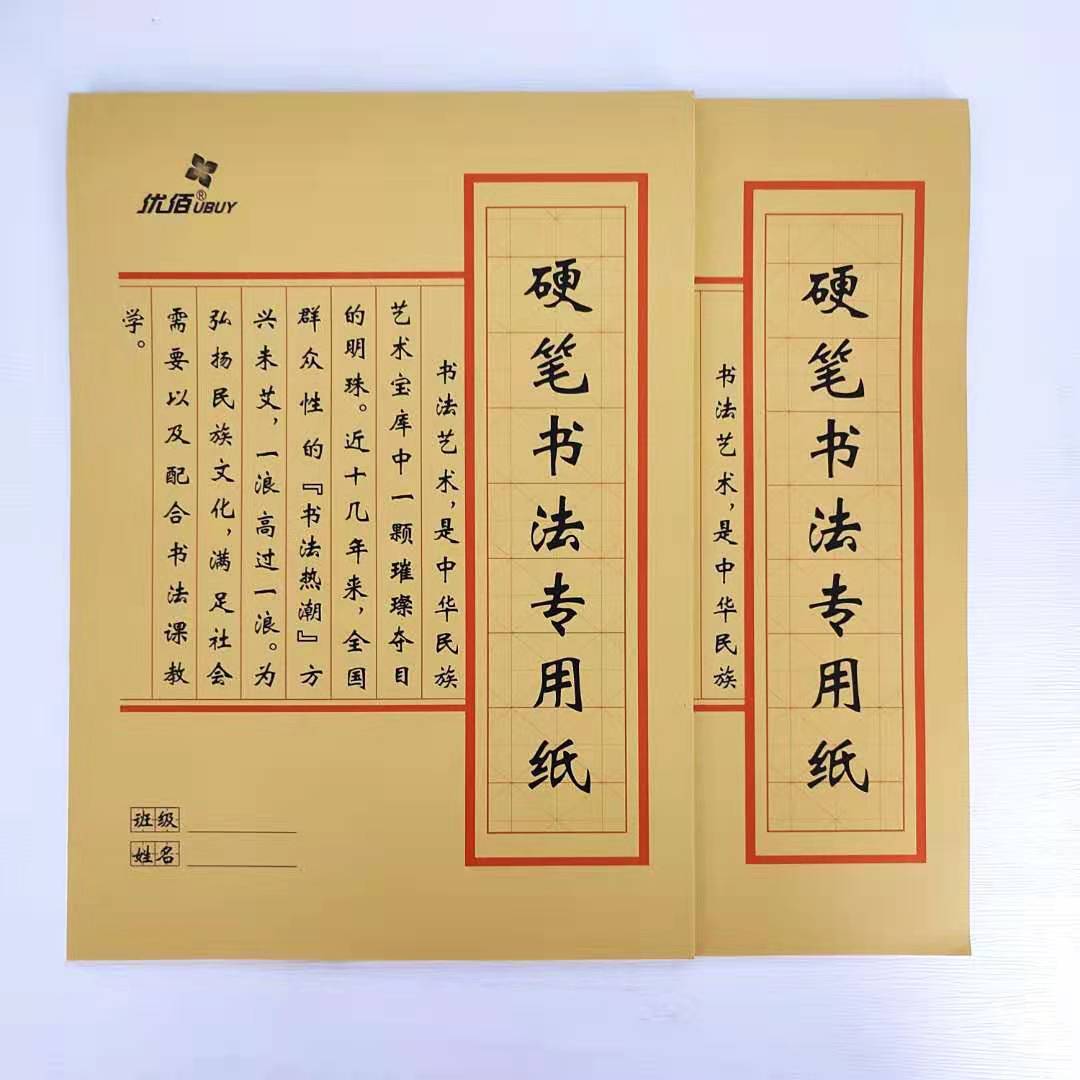 优佰®UBUY
硬笔书法专用纸
书法艺术，是中华民族
艺术宝库中一颗璀璨夺目
的明珠。近十几年来，全国
群众性的『书法热潮』方
兴未艾，一浪高过一浪。为
弘扬民族文化，满足社会
需要以及配合书法课教
学。
班级
姓名
硬笔书法专用纸
书法艺术，是中华民族